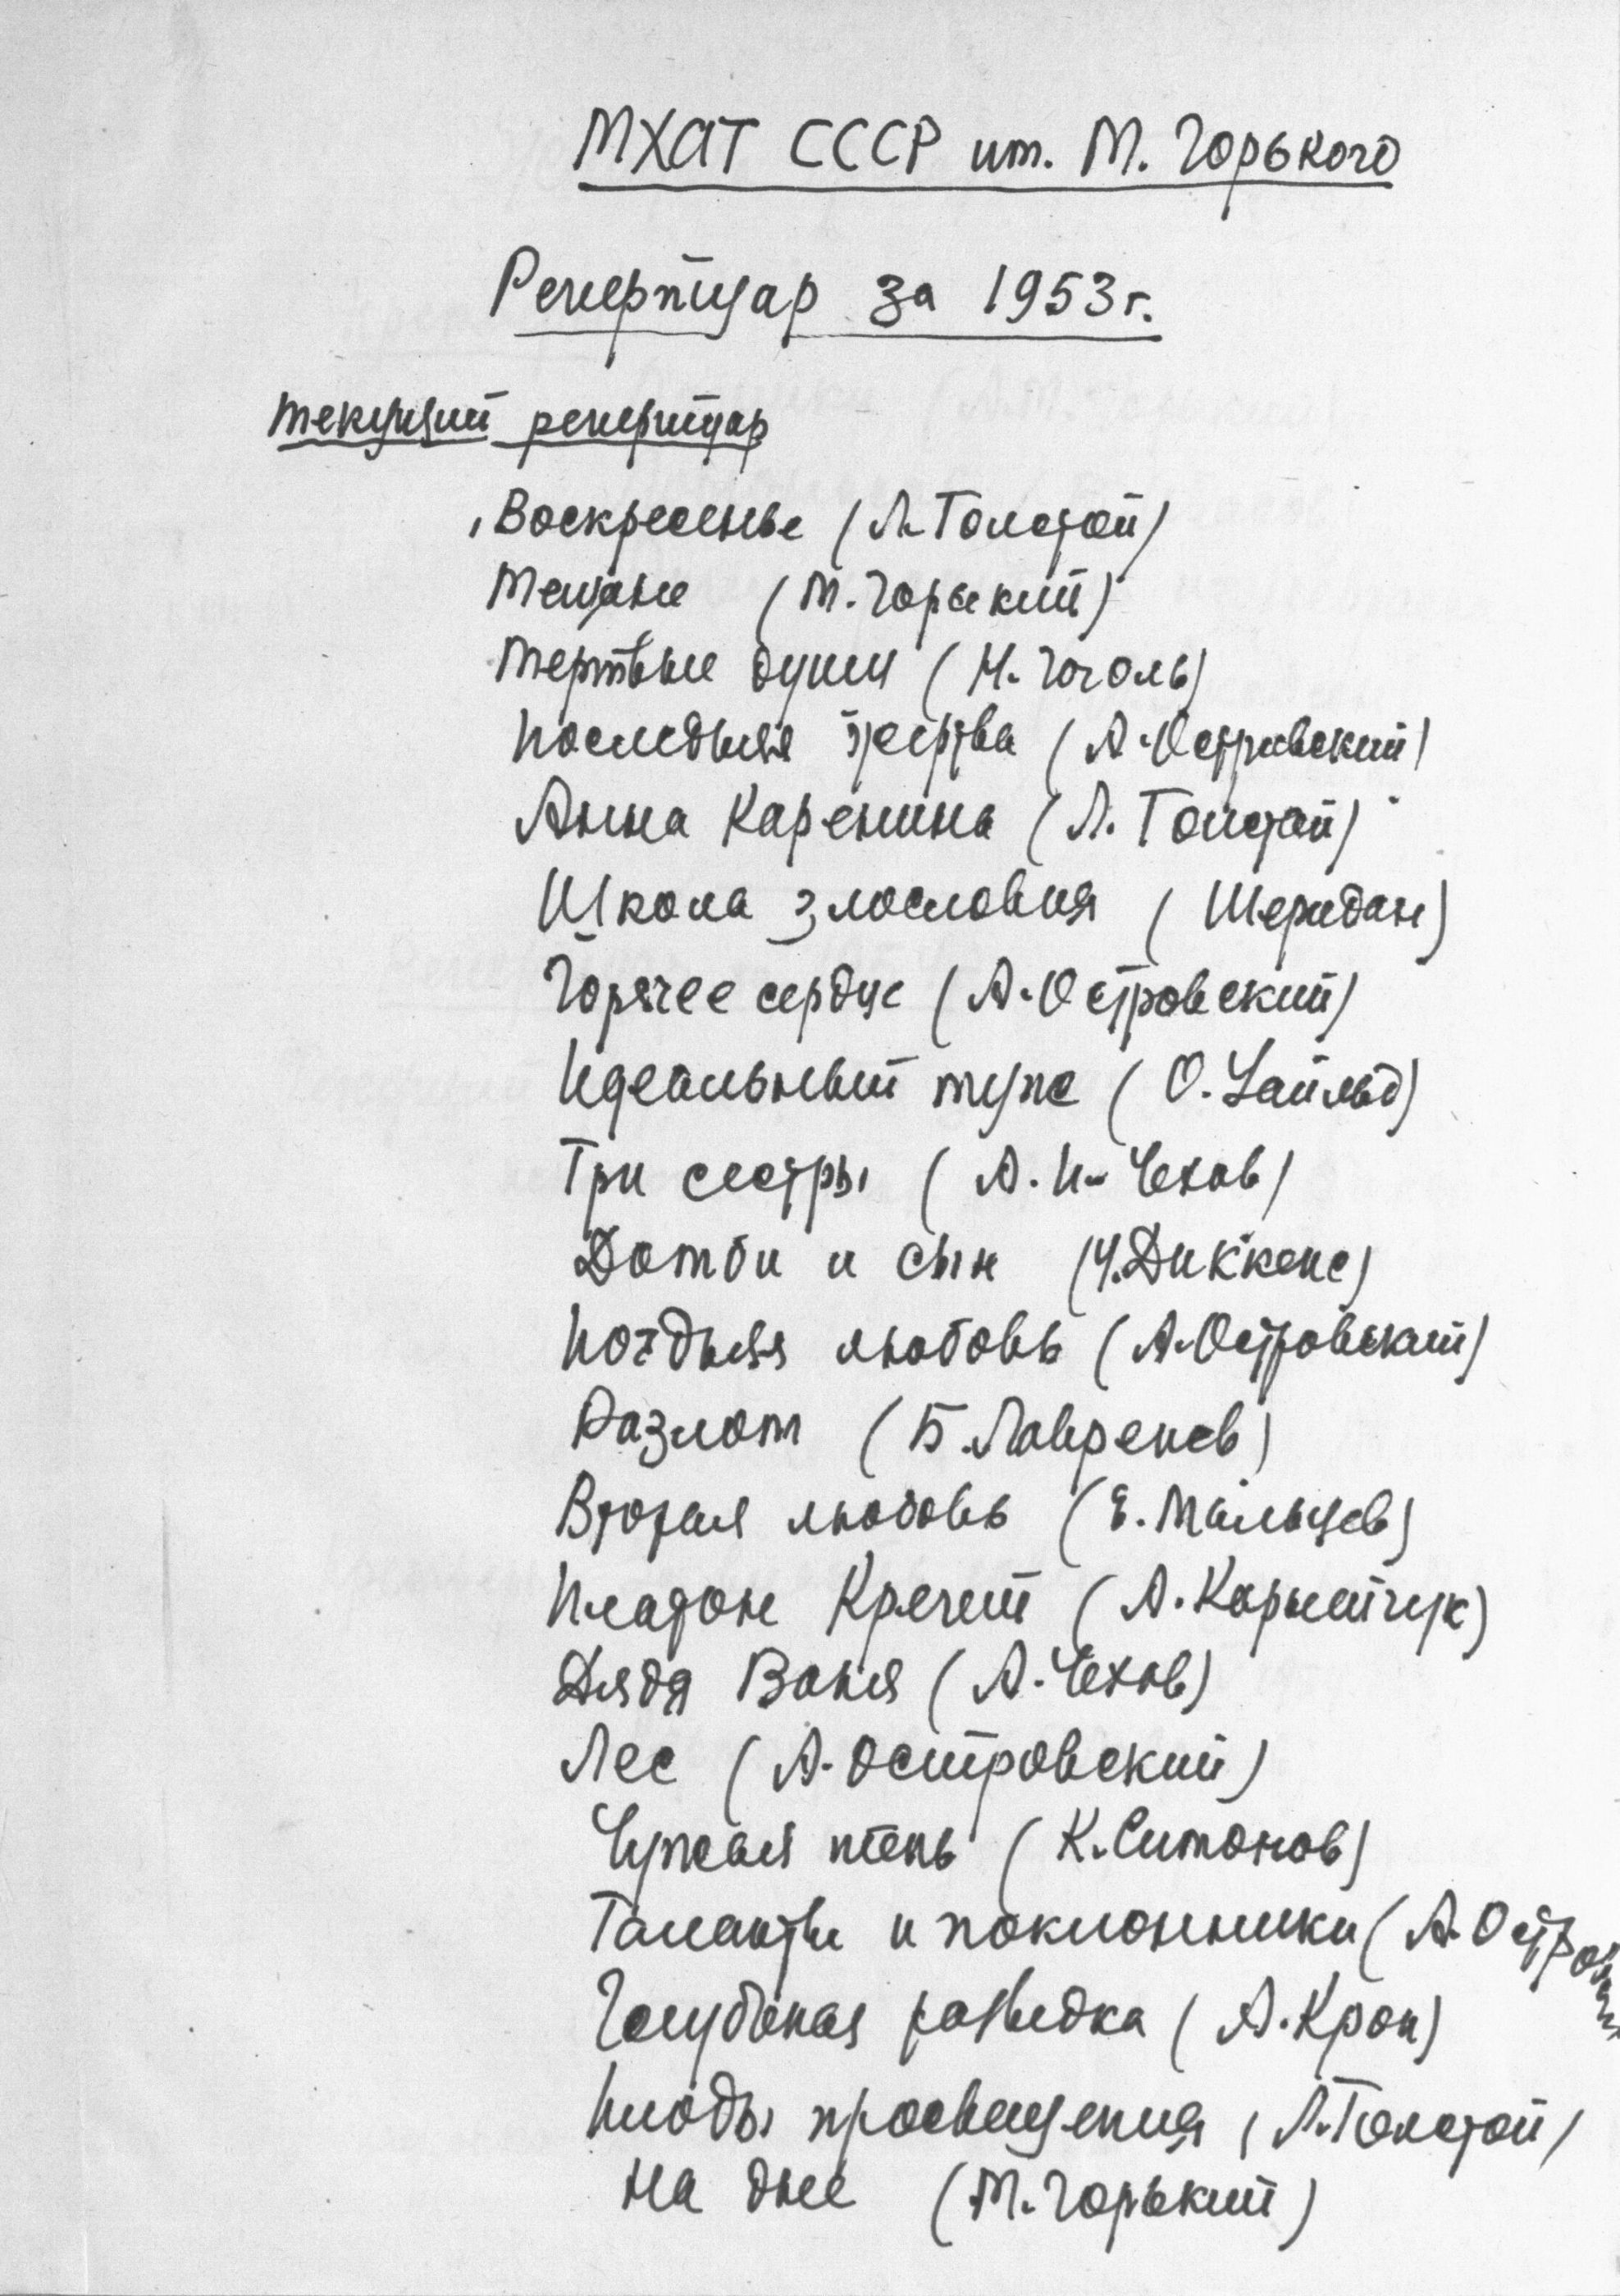 МХАТ СССР им. М. Горького
Репертуар за 1953 г.
Текущий репертуар
Воскресенье (Л. Толстой)
Мещане (М. Горький)
Мертвые души (Н. Гоголь)
Последняя жертва (А. Островский)
Анна Каренина (Л. Толстой)
Школа злословия (Шеридан)
Горячее сердце (А. Островский)
Идеальный муж (О. Уайльд)
Три сестры (А. П. Чехов)
Домби и сын (Ч. Диккенс)
Поздняя любовь (А. Островский)
Разлом (Б. Лавренев)
Вторая любовь (Е. Мальцев)
Платон Кречет (А. Корнейчук)
Дядя Ваня (А. Чехов)
Лес (А. Островский)
Чужая тень (К. Симонов)
Таланты и поклонники (А. Островский
Глубокая разведка (А. Крон)
Плоды просвещения (Л. Толстой)
На дне (М. Горький)